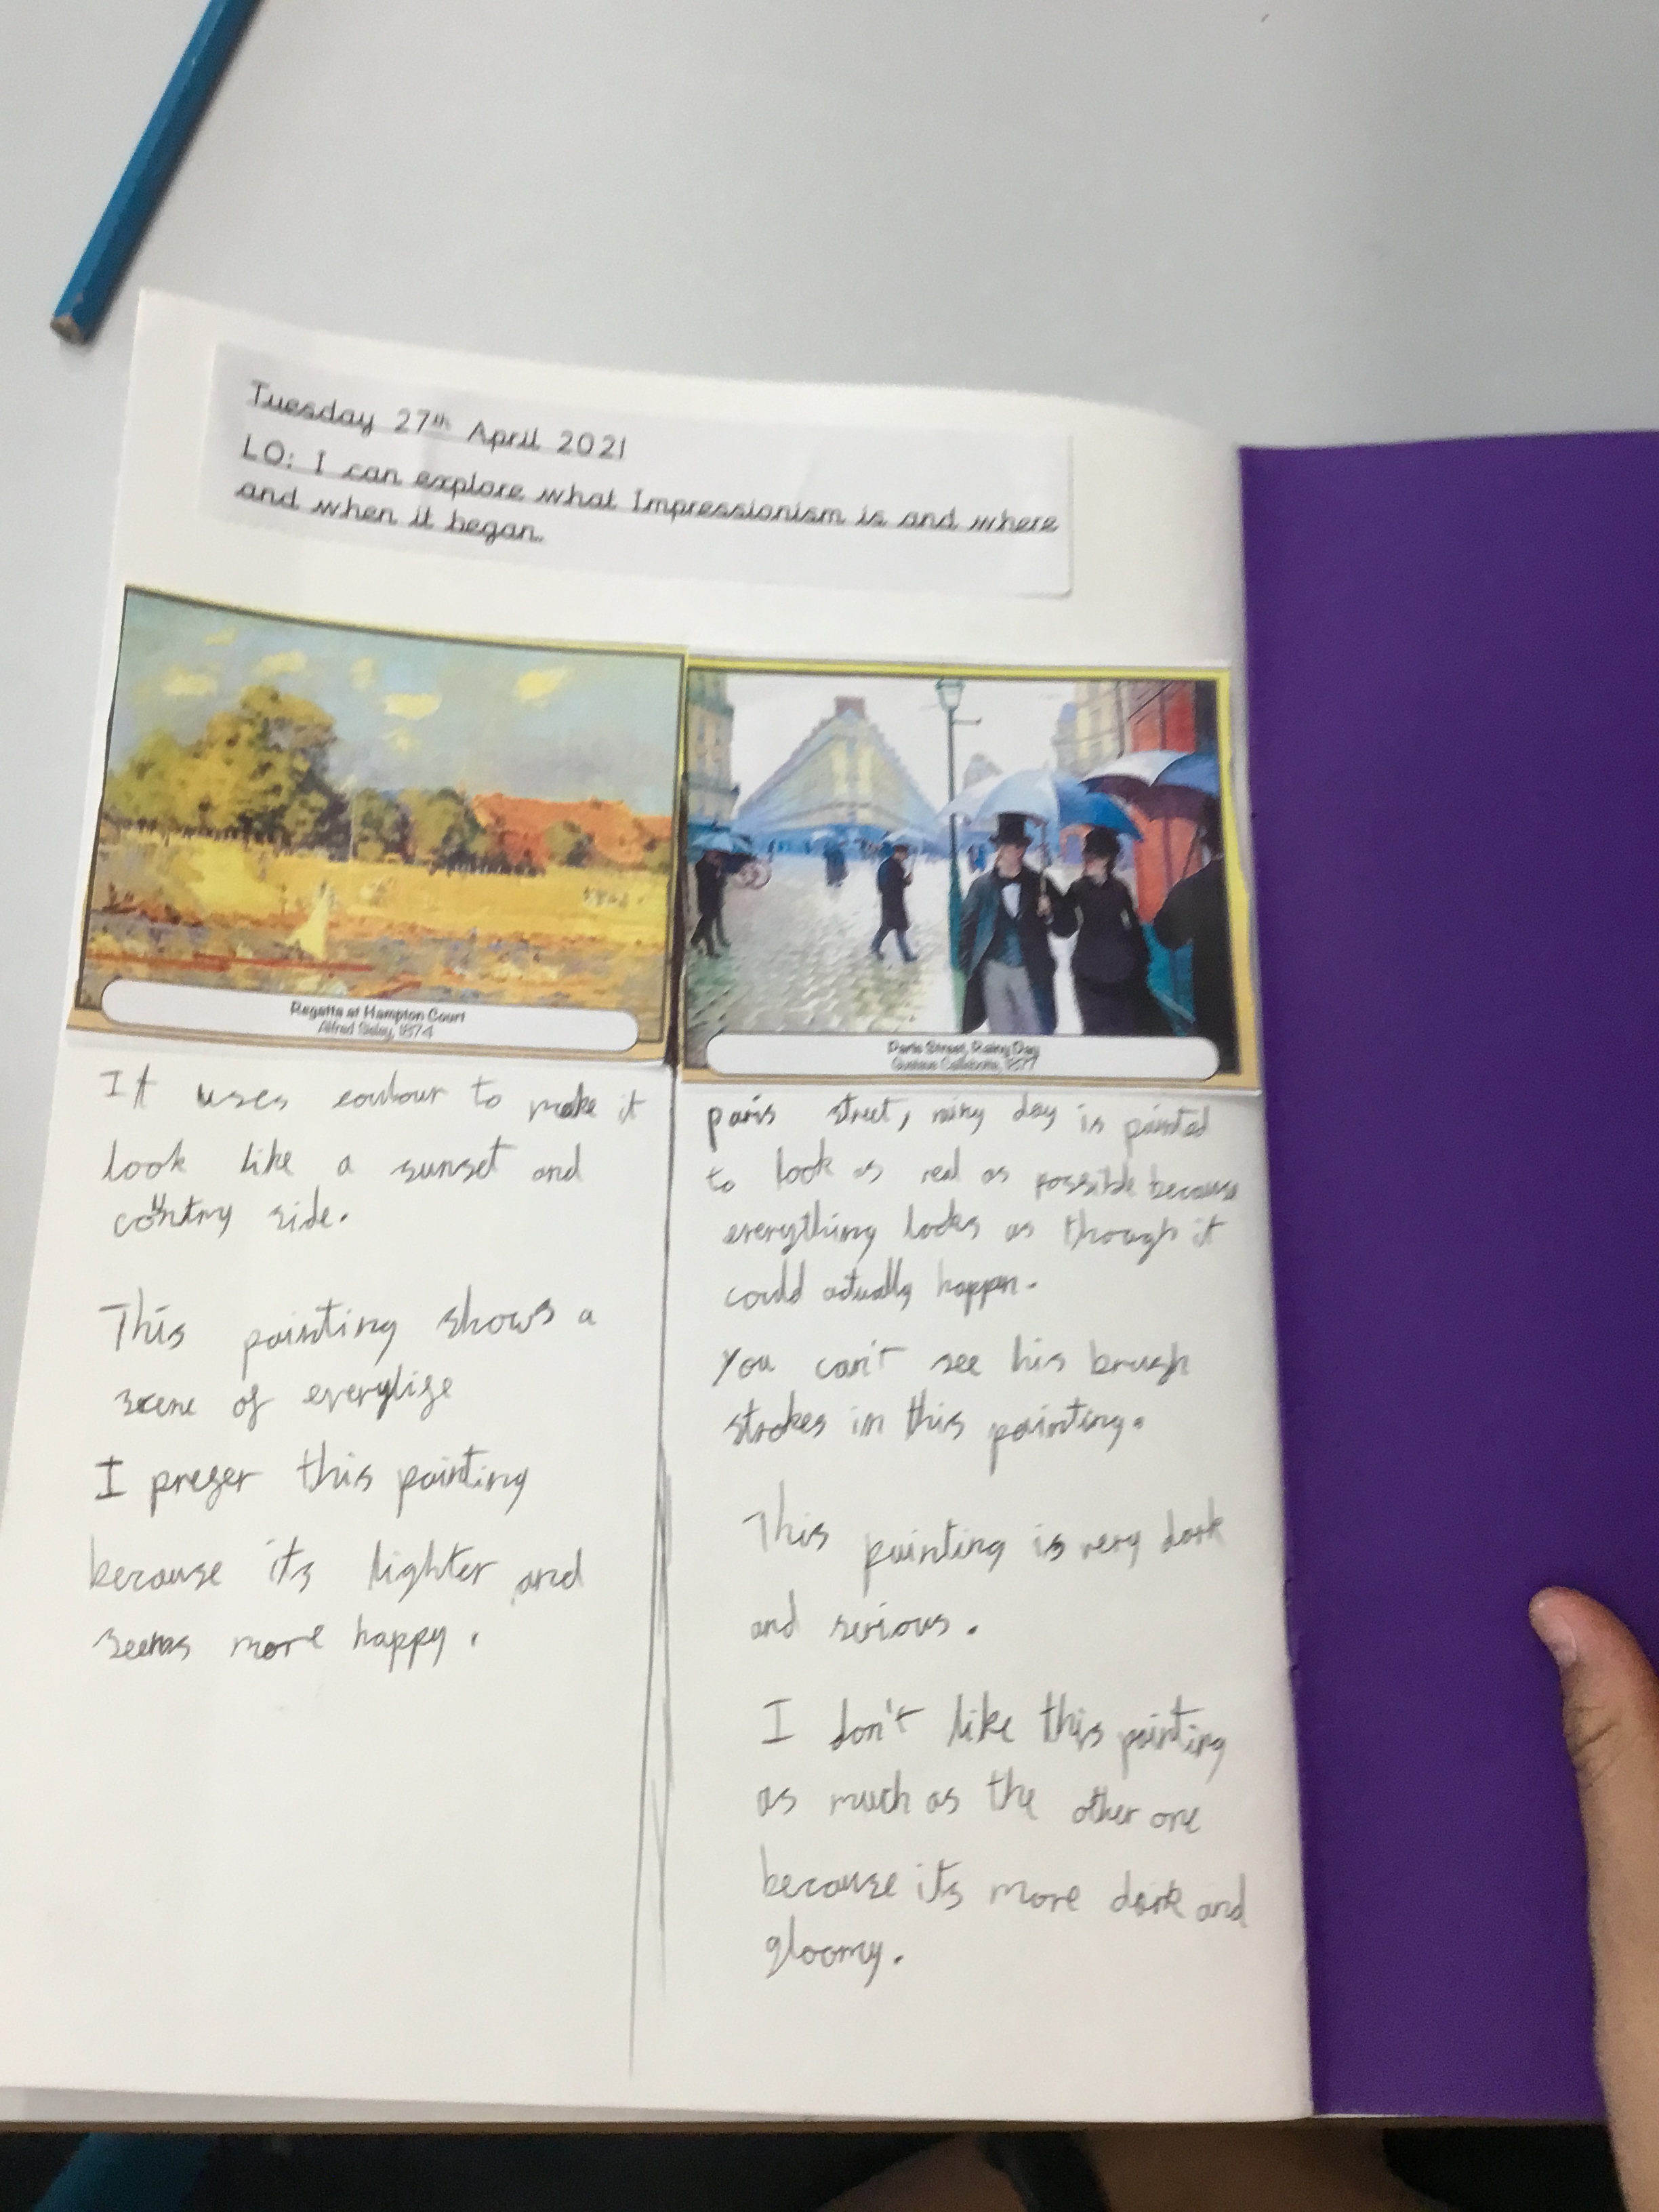 Tuesday 27th April 2021
LO: I can explore what Impressionism is and where
and when it began.
Regatta at Hampton Court
Alfred Sisley, 1874
It uses coulour to make it
look like a sunset and
country side.
This painting shows a
scene of everylife
I prefer this painting
because its lighter and
seems more happy.
Paris Street, Rainy Day
Gustave Caillebotte, 1877
paris street, rainy day is painted
to look as real as possible because
everything looks as though it
could actually happen.
You can't see his brush
strokes in this painting.
This painting is very dark
and serious.
I don't like this painting
as much as the other one
because its more dark and
gloomy.